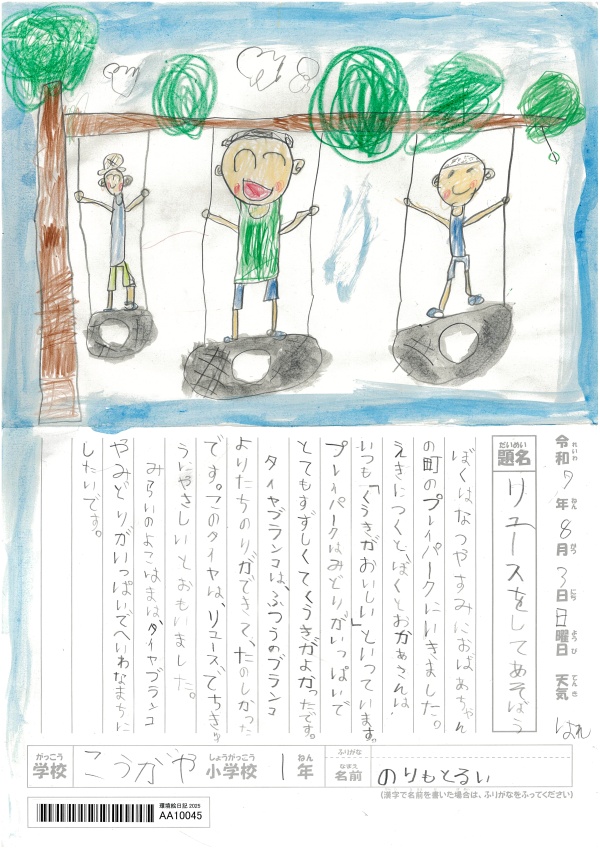 令和7年8月3日日曜日 天気 はれ
れいわ ねん がつ にち ようび てんき
だいめい
題名 リユースをしてあそぼう
ぼくはなつやすみにおばあちゃん
の町のプレイパークにいきました。
えきにつくと、ぼくとおかあさんは、
いつも「くうきがおいしい」といっています。
プレイパークはみどりがいっぱいで
とてもすずしくてくうきがよかったです。
タイヤブランコは、ふつうのブランコ
よりたちのりができて、たのしかった
です。このタイヤは、リユースでちきゅ
うにやさしいとおもいました。
みらいのよこはまは、タイヤブランコ
やみどりがいっぱいでへいわなまちに
したいです。
がっこう しょうがっこう ねん ふりがな
学校 こうがや 小学校 1年 なまえ 名前 のりもとるい
(漢字で名前を書いた場合は、ふりがなをふってください)
環境絵日記 2025
AA10045